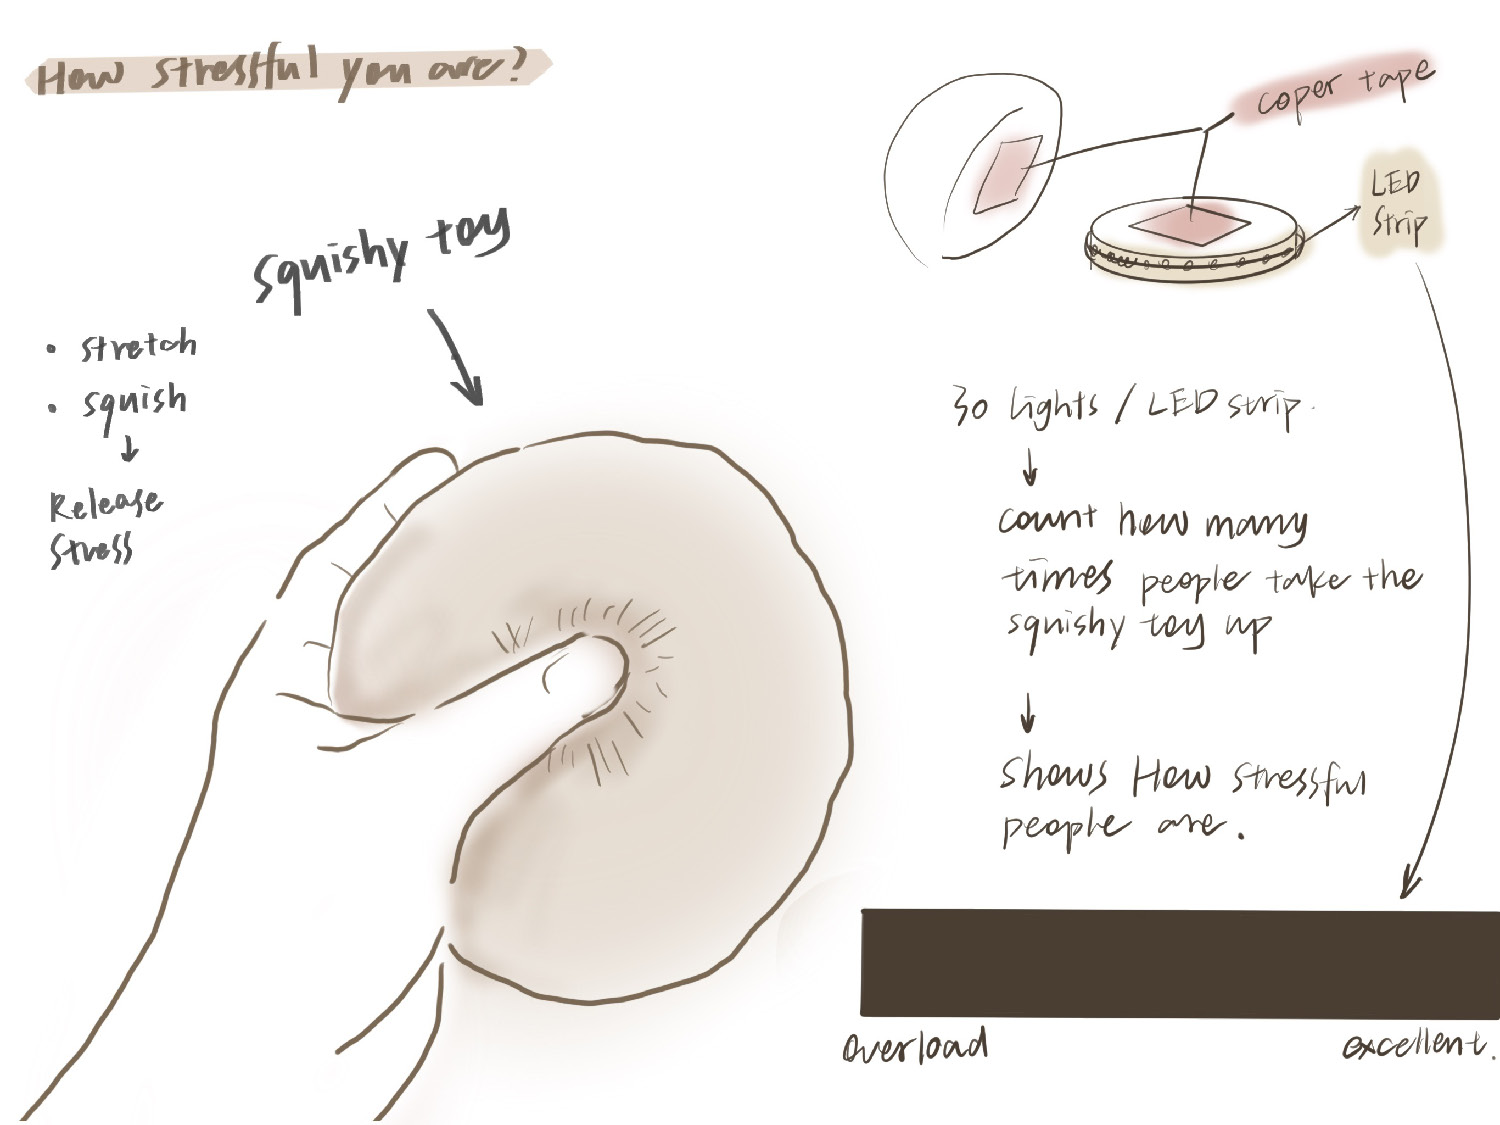 How stressful you are?
squishy toy
• stretch
• squish
Release
stress
coper tape
LED
Strip
30 lights / LED strip.
count how many
times people take the
squishy toy up
shows How stressful
people are.
overload
excellent.